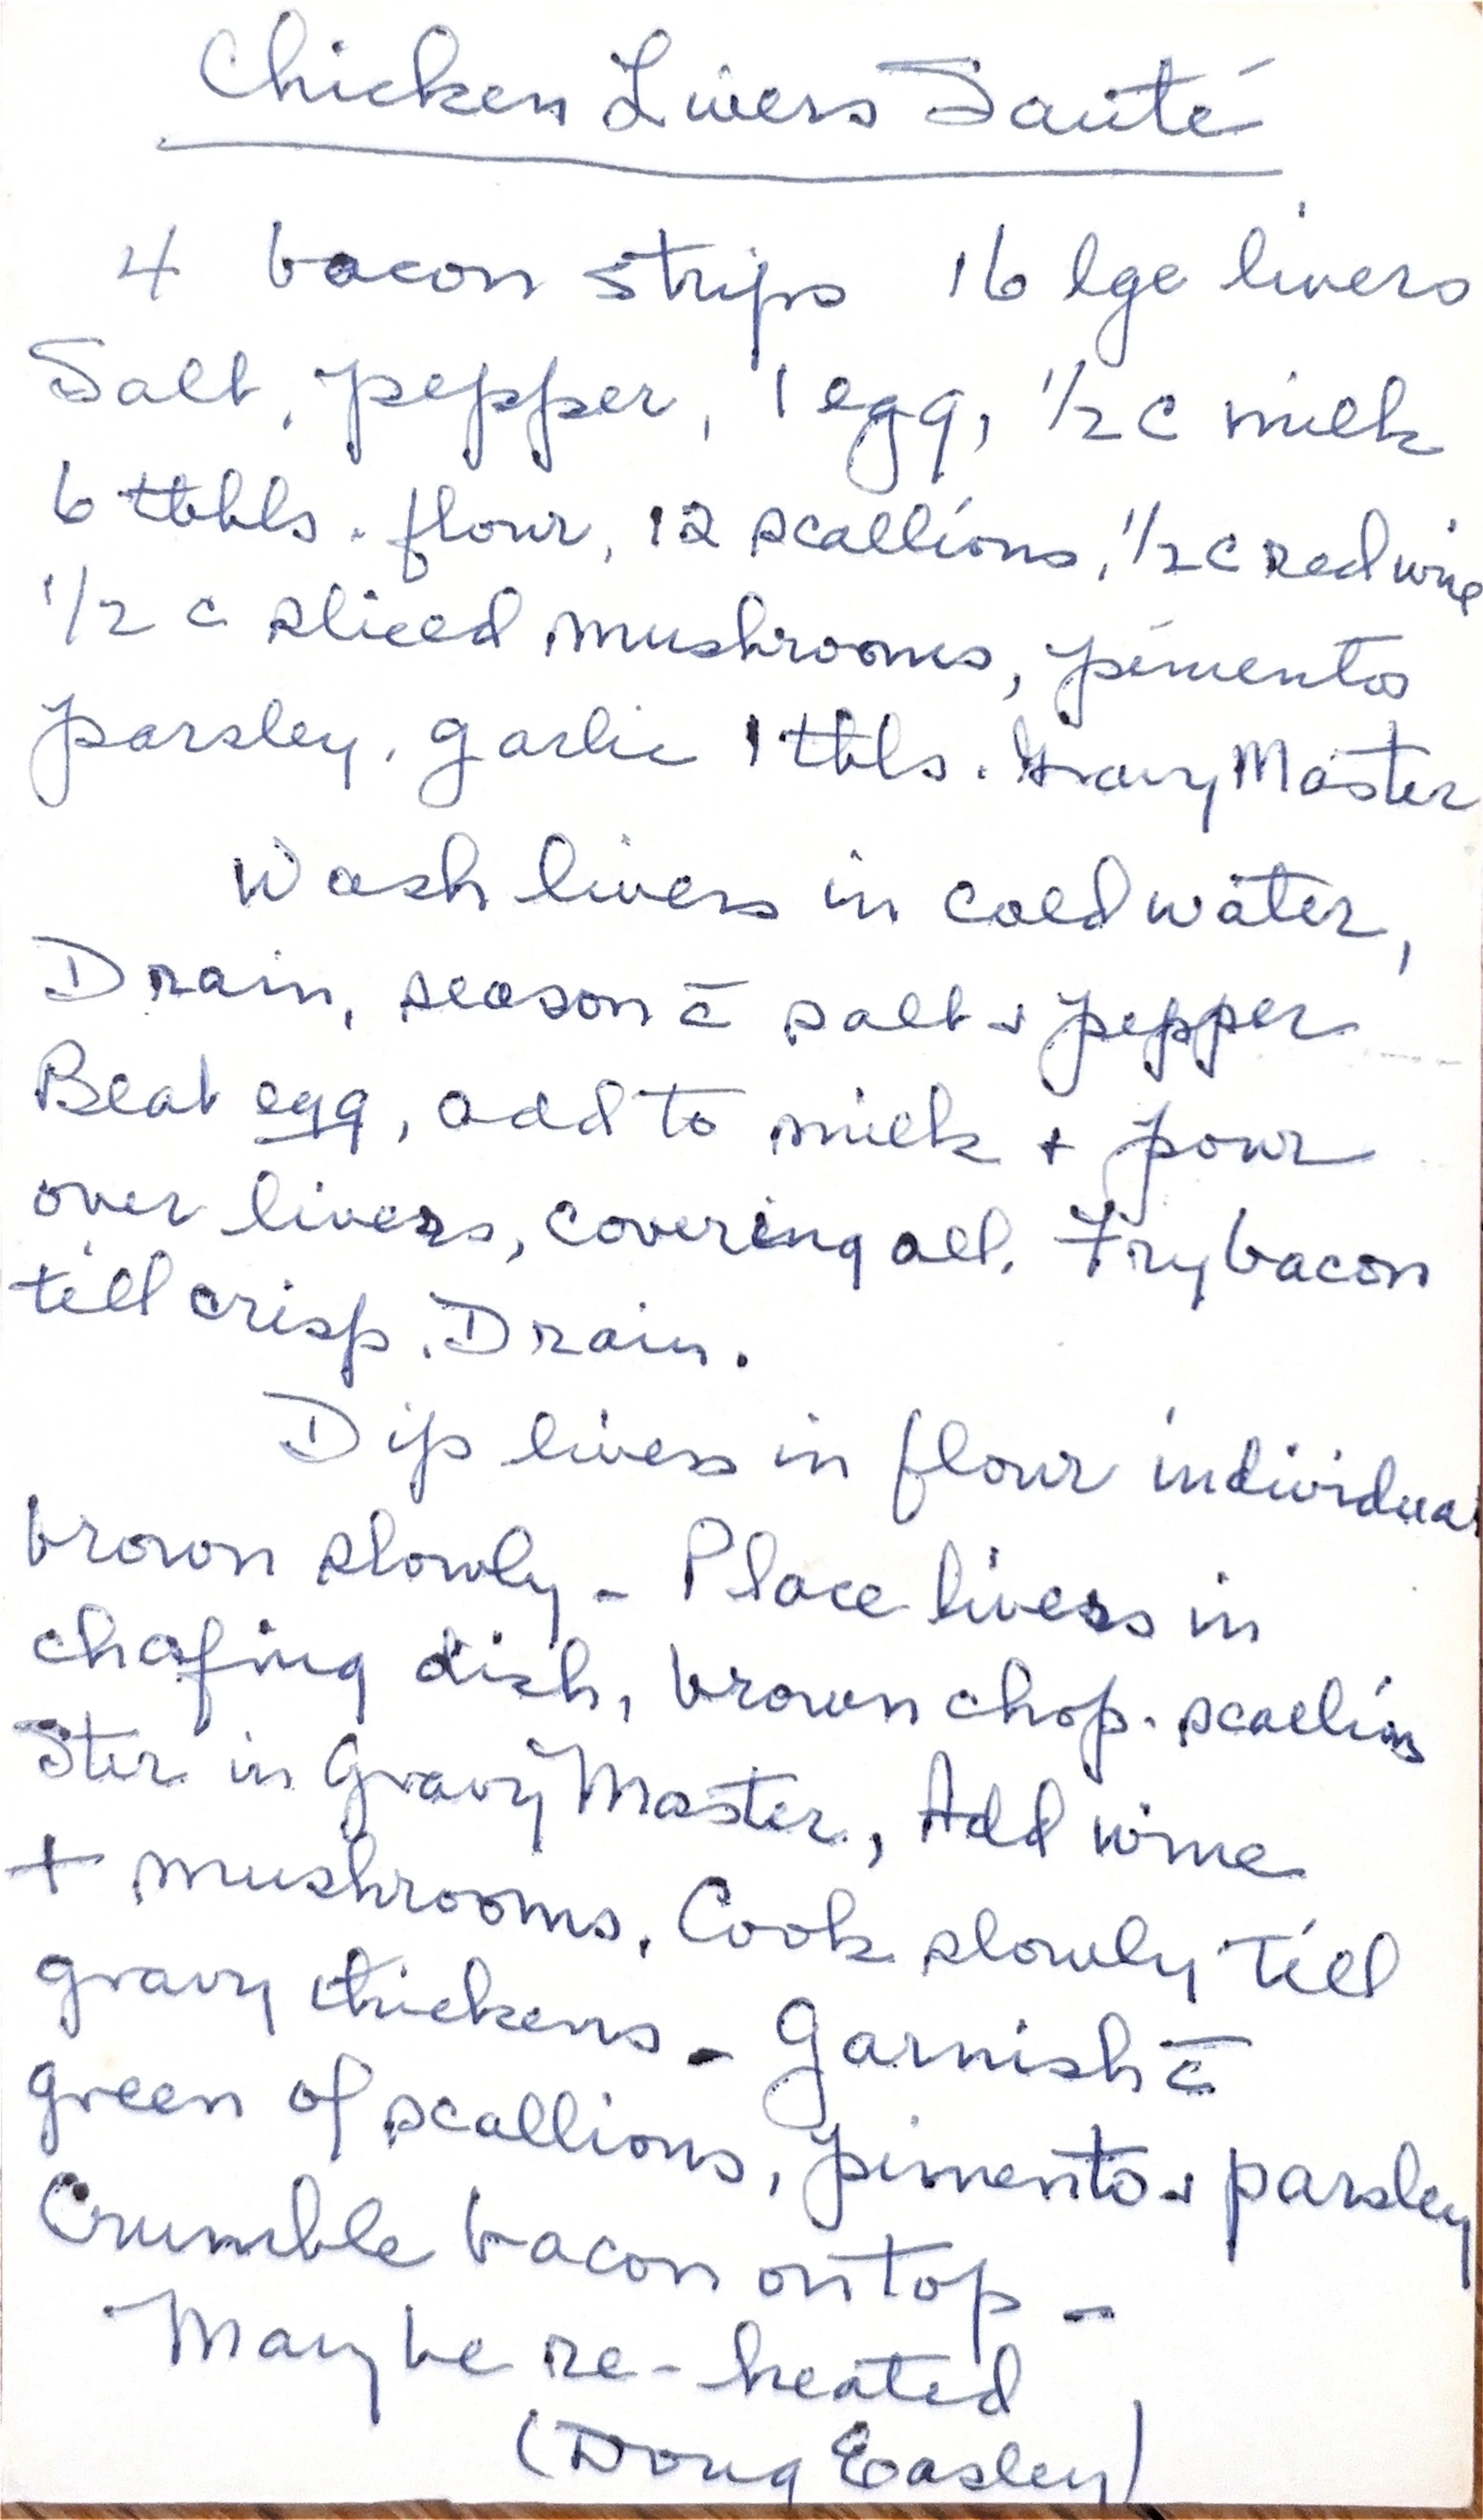 Chicken Livers Sauté
4 bacon strips 16 lge livers
Salt, pepper, 1 egg, 1/2 c milk
6 tbbls. flour, 12 scallions, 1/2 c red wine
1/2 c sliced mushrooms, pimentos
parsley, garlic 1 tbls. Gravy Master
Wash livers in cold water,
Drain, season c̄ salt & pepper
Beat egg, add to milk + pour
over livers, covering all. Fry bacon
till crisp. Drain.
Dip livers in flour individual
brown slowly - Place livers in
chafing dish, brown chop. scallions
Stir in Gravy Master, Add wine
+ mushrooms. Cook slowly till
gravy thickens - Garnish c̄
green of scallions, pimento & parsley
Crumble bacon on top -
May be re-heated
(Doug Easley)